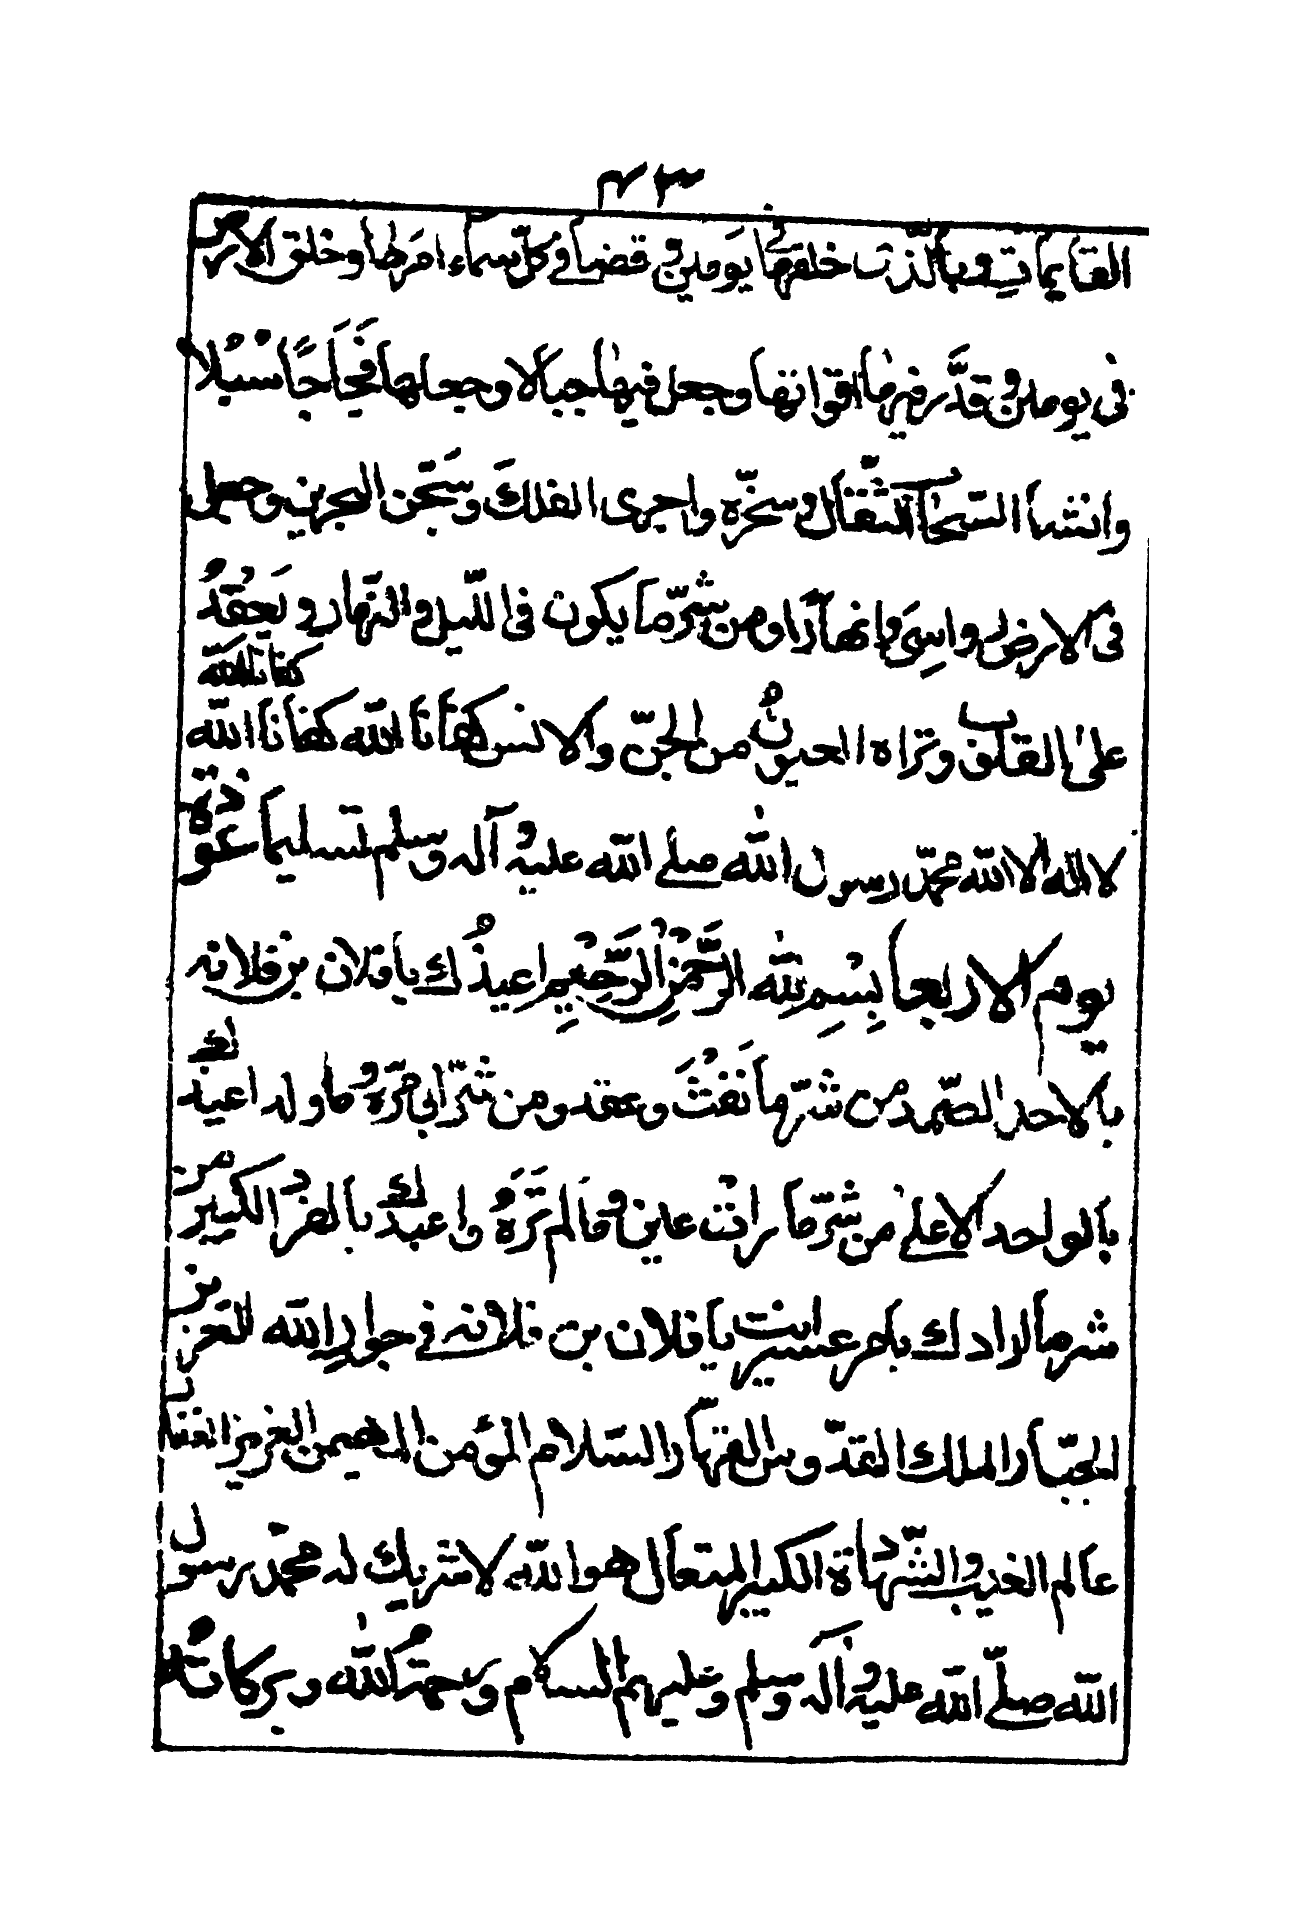 ٧٣
القايمات وبالذى خلقها فى يومين وقضا فى كل سماء امرها وخلق الارض
فى يومين وقدّر فيها اقواتها وجعل فيها جبالا وجعلها فجاجا سبلا
وانشا السّحاب الثقال وسخره واجرى الفلك وسخّر البحرين وجعل
فى الارض رواسى وانهارا ومن شرّ ما يكون فى اللّيل والنّهار ويعقد
على القلب وتراه العيون من الجنّ والانس كفانا الله كفانا الله كفانا الله
لا اله الا الله محمّد رسول الله صلى الله عليه وآله وسلم تسليما عوذة
يوم الاربعا بِسْمِ اللّه الرَّحْمنِ الرَّحِيمِ اعيذك يا فلان بن فلانه
بالاحد الصّمد من شرّ ما نفث وعقد ومن شرّ ابى مرّة وما ولد اعيذك
بالواحد الاعلى من شرّ ما رات عين وما لم تره واعيذك بالفرد الكبير من
شر ما ارادك بامر عسير انت يا فلان بن فلانه فى جوار الله العزيز
الجبّار الملك القدّوس القهّار السّلام المؤمن المهيمن العزيز الغفار
عالم الغيب والشّهادة الكبير المتعال هو اللّه لا شريك له محمّد رسول
الله صلّى الله عليه وآله وسلم وعليهم السلام ورحمة اللّه وبركاته